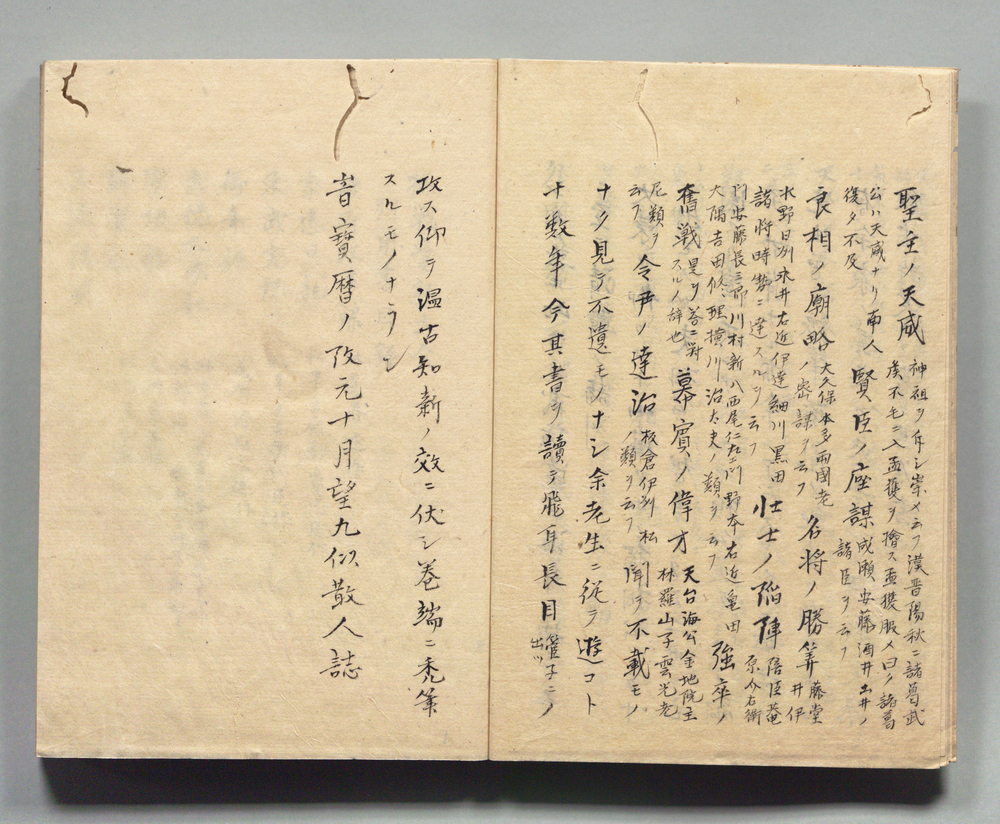 聖主ノ天威 神祖ヲ斥シ崇メ云フ漢晋陽秋ニ諸葛武
侯不毛ニ入孟獲ヲ擒ス孟獲服メ曰ク諸葛
公ハ天威ナリ南人
復タ不反 賢臣ノ座謀 成瀬安藤酒井土井ノ
諸臣ヲ云フ
良相ノ廟略 大久保本多両國老
ノ密謀ヲ云フ 名将ノ勝筭 藤堂
井伊
水野日刕永井右近伊達細川黒田
諸将時勢ニ達スルヲ云フ 壮士ノ陥陣 陪臣菴
原介右衛
門安藤長三郎川村新八西尾仁左ヱ門野本右近亀田
大隅吉田修理横川治太夫ノ類ヲ云フ 強卒ノ
奮戦 是ヲ善ニ對
スルノ辞也 幕賓ノ偉才 天台海公金地院主
林羅山子雲光老
尼類ヲ
云フ 令尹ノ達治 板倉伊刕松
ノ類ヲ云フ 聞テ不載モノ
ナク見テ不遺モノナシ余老生ニ從テ遊コト
十数年今其書ヲ讀テ飛耳長目 管子ニ
出ツ ノ
攻ス仰テ温古知新ノ效ニ伏シ巻端ニ禿筆
スルモノナラン
旹寳暦ノ改元十月望九似散人誌